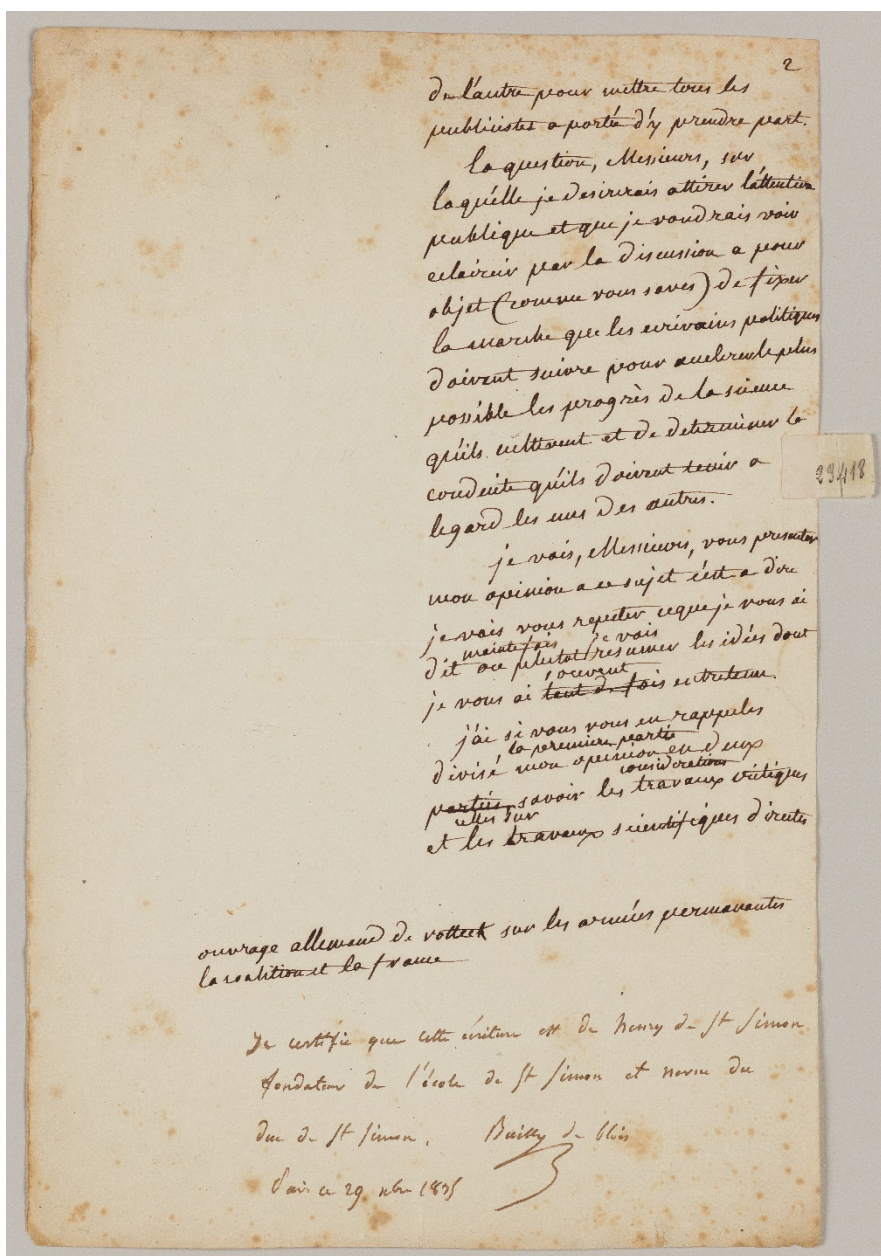 2
de l'autre pour mettre tous les
publicistes a portée d'y prendre part.
la question, Messieurs, sur
laqu'elle je desirerais attirer l'attention
publique et que je voudrais voir
eclaircir par la discussion a pour
objet (comme vous savés) de fixer
la marche que les ecrivains politiques
doivent suivre pour accelerer le plus
possible les progrès de la science
qu'ils cultivent et de determiner la
conduite qu'ils doivent tenir a
legard les uns des autres.
je vais, Messieurs, vous presenter
mon opinion a ce sujet c'est a dire
je vais vous repeter ce que je vous ai
maintefois je vais
dit ou plutot resumer les idées dont
souvent
je vous ai tant de fois entretenu.
j'ai si vous vous en rappelés
la premiere partie
divisé mon opinion en deux
considerations
parties savoir les travaux critiques
celles sur
et les travaux scientifiques directes
23418
ouvrage allemand de rotteck sur les armées permanantes
la coalition et la france
Je certifie que cette écriture est de henry de St Simon
fondateur de l'école de St Simon et neveu du
duc de St Simon. Bailly de blois
Paris ce 29 nbre 1835